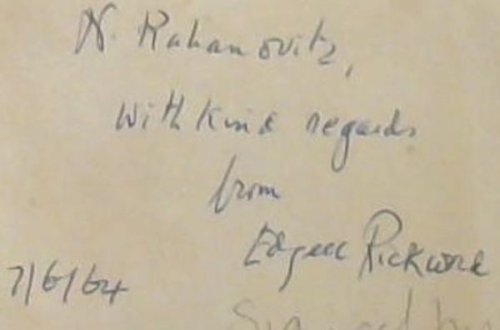 N. Kahanovitz,
With kind regards
from
Edgell Rickword
7/6/64
Signed by